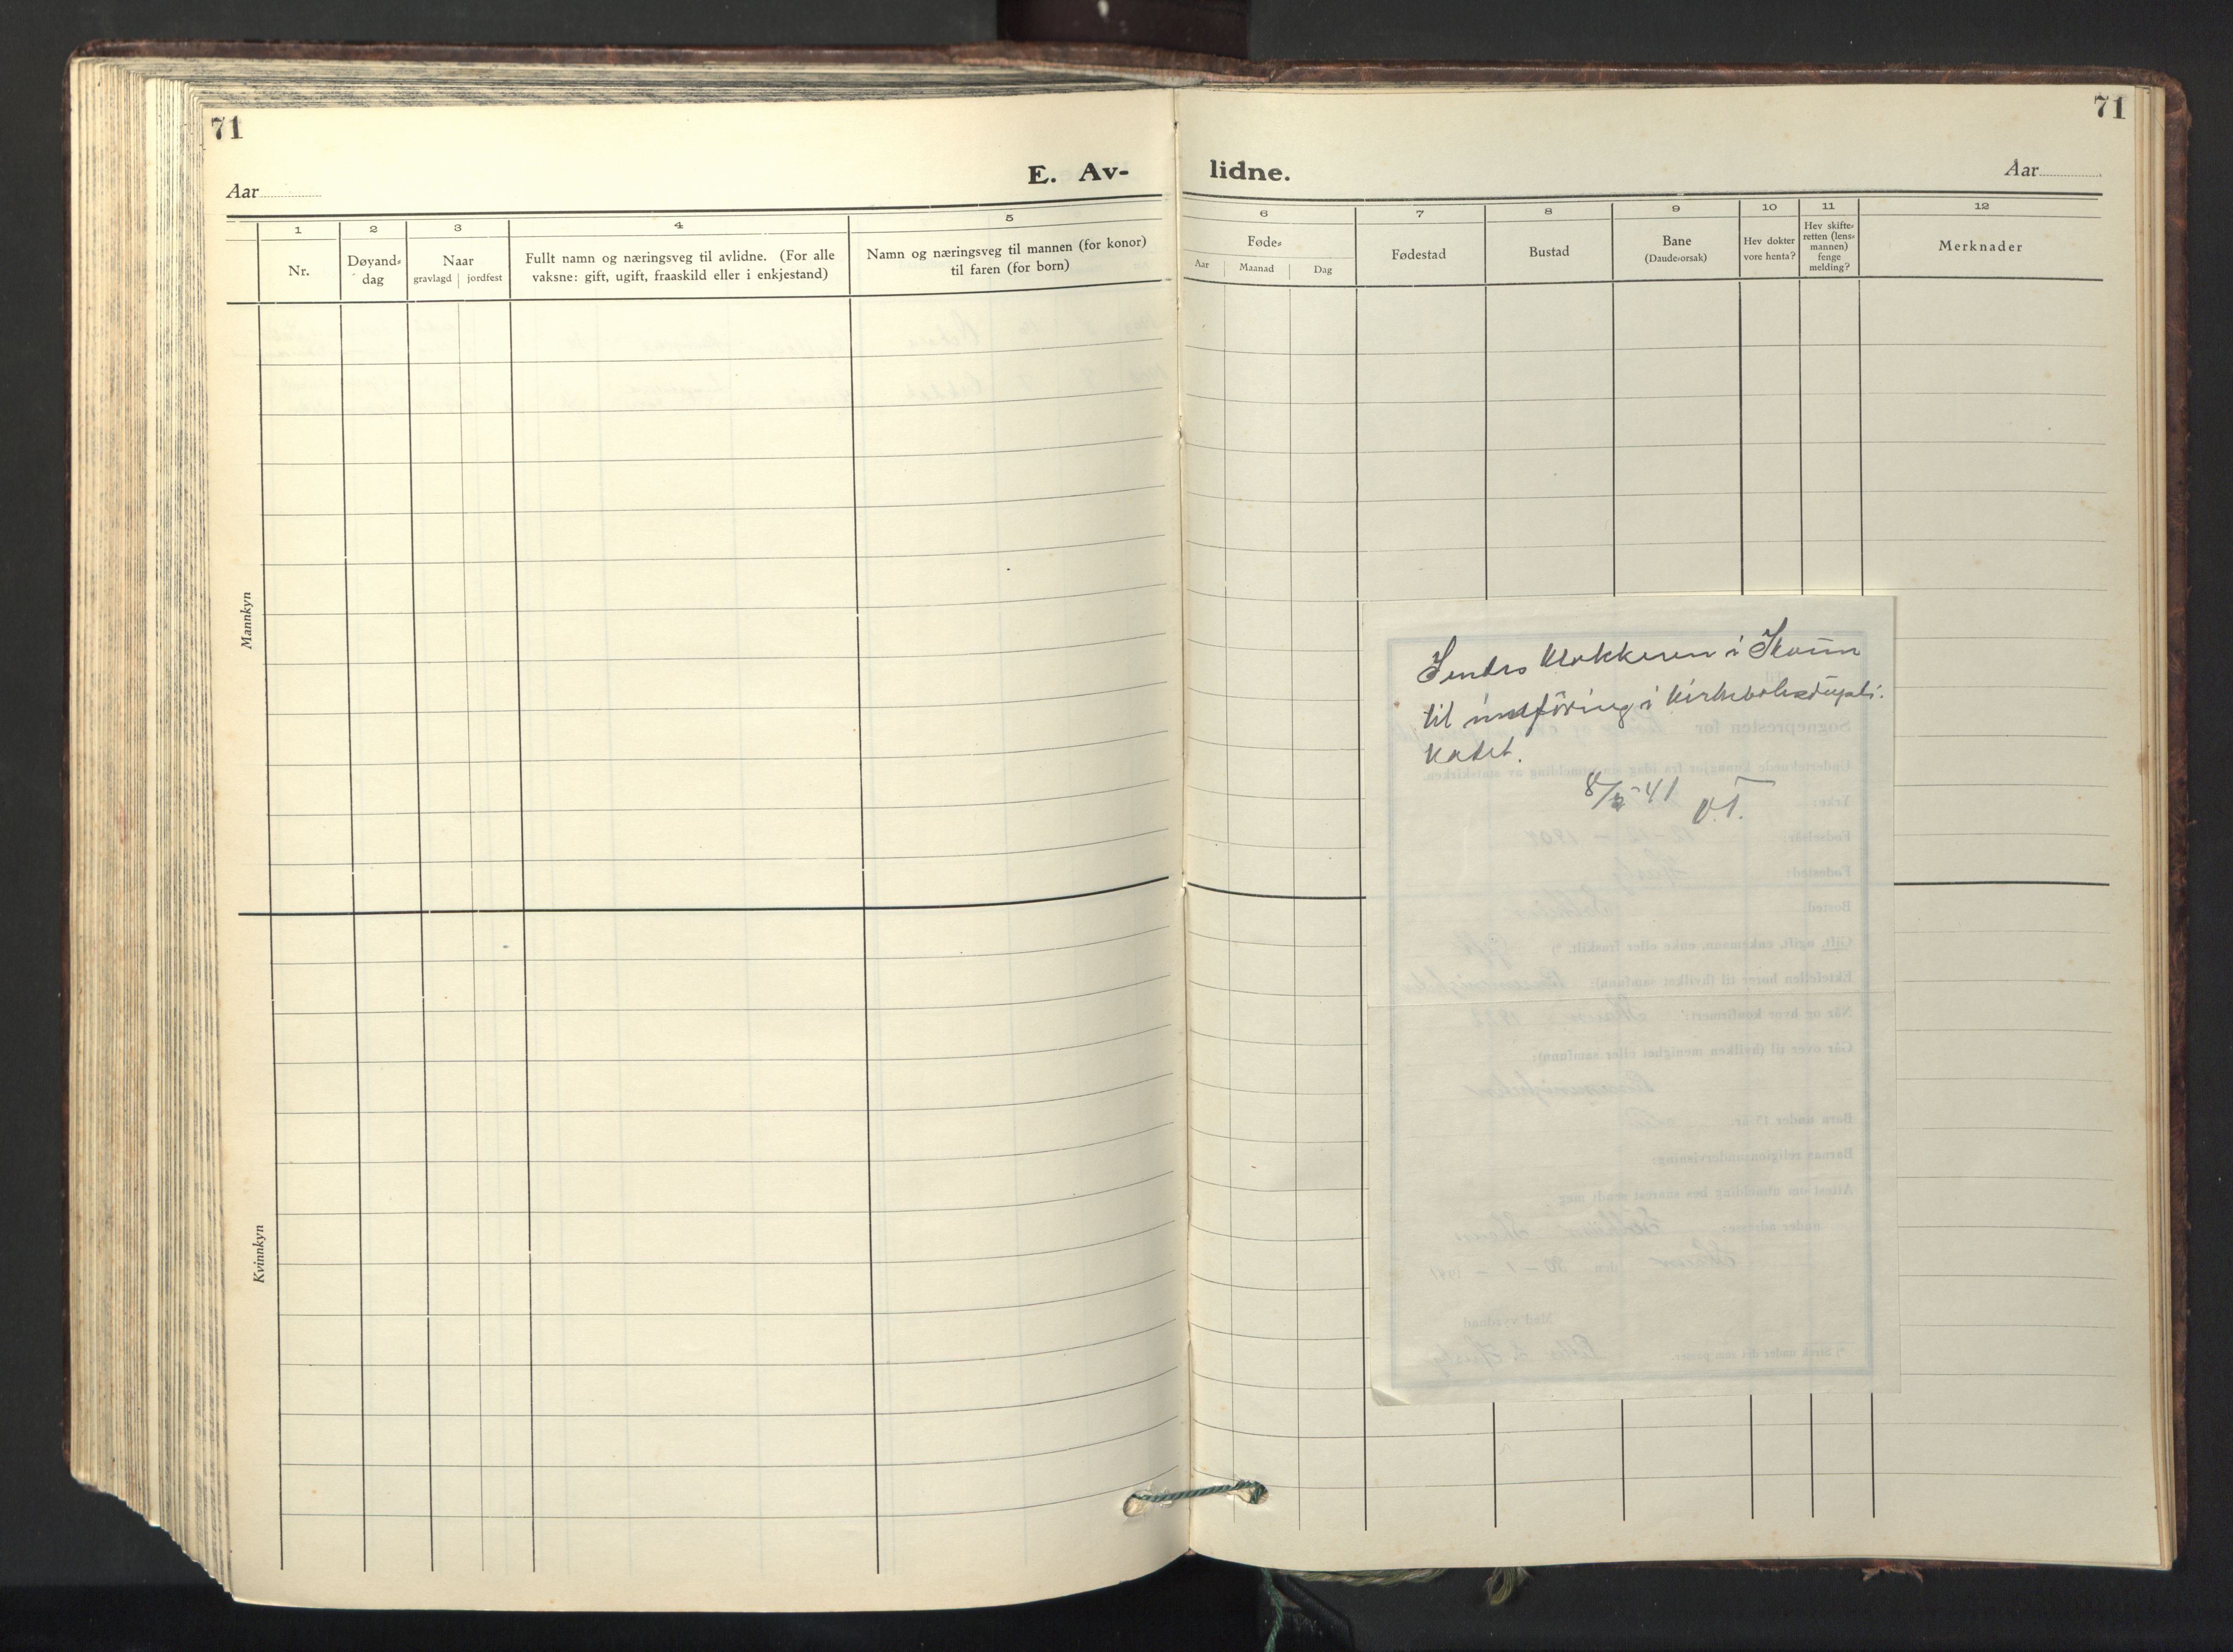 71
71
E. Av-
lidne.
Aar
Aar
1
2
3
4
5
6
7
8
9
10
11
12
Nr.
Døyand-
dag
Naar
gravlagd | jordfest
Fullt namn og næringsveg til avlidne. (For alle
vaksne: gift, ugift, fraaskild eller i enkjestand)
Namn og næringsveg til mannen (for konor)
til faren (for born)
Føde-
Aar
Maanad
Dag
Fødestad
Bustad
Bane
(Daude-orsak)
Hev dokter
vore henta?
Hev skifte-
retten (lens-
mannen)
fenge
melding?
Merknader
Mannkyn
Kvinnkyn
Sendes klokkeren i Skaun
til innføring i kirkeboksdupli-
katet.
8/2-41 O.T.
Sognepresten for
Undertegnede
fra idag
utmelding av statskirken.
Yrke:
Fødselsår: 12-12-1907
Fødested: Husby
Bosted:
Gift, ugift, enkemann, enke eller fraskilt. *) Gift
Ektefellen hører til (hvilket samfunn):
Når og hvor konfirmert: Skaun 1922
Går over til (hvilken menighet eller samfunn):
Barn under 15 år:
Barnas religionsundervisning:
Attest om utmelding bes snarest sendt mig
under adresse: Skaun
Skaun den 30-1-1941
*) Strek under det som passer.